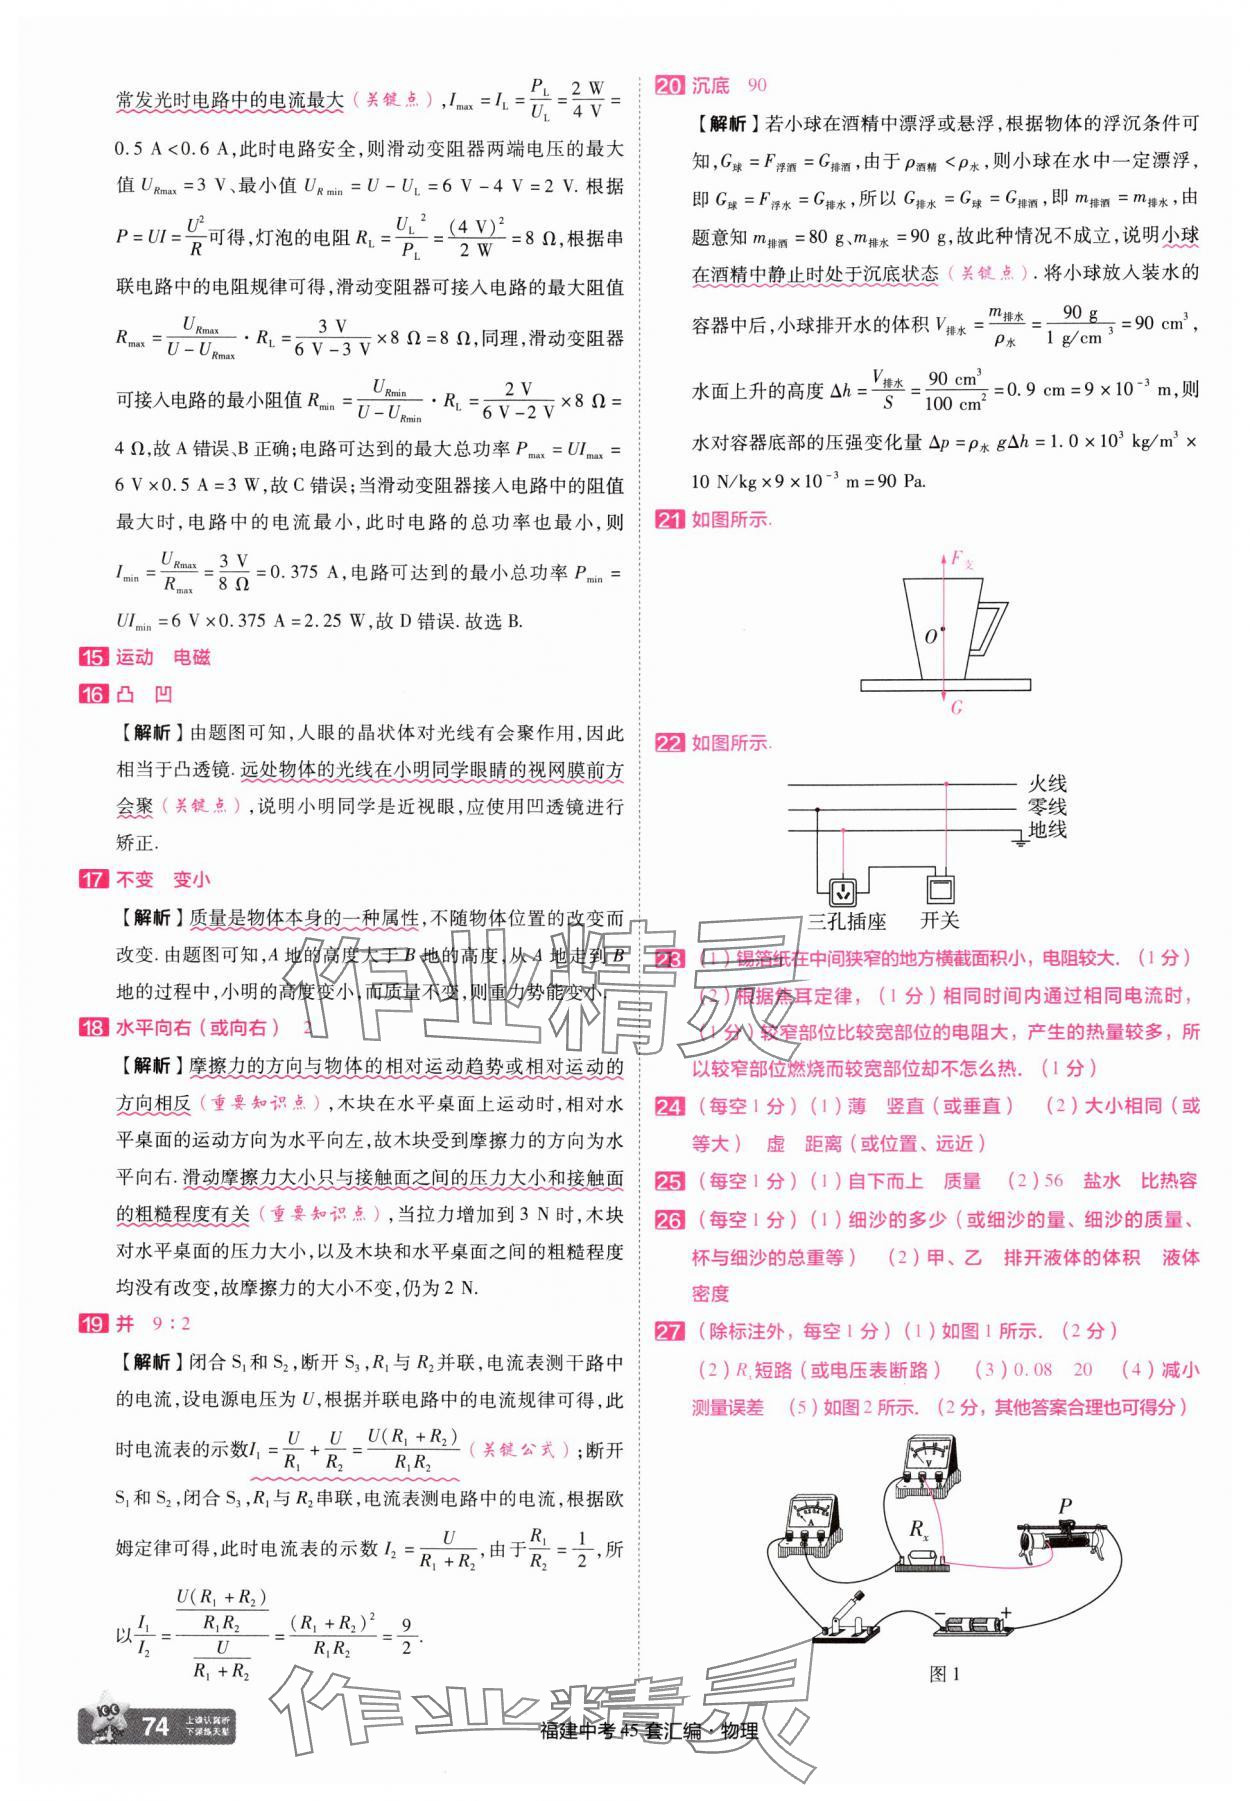 常发光时电路中的电流最大(关键点),Imax=IL=PL/UL=2 W/4 V=
0.5 A<0.6 A,此时电路安全,则滑动变阻器两端电压的最大
值 URmax=3 V、最小值 UR min=U-UL=6 V-4 V=2 V. 根据
P=UI=U²/R可得,灯泡的电阻 RL=UL²/PL=(4 V)²/2 W=8 Ω,根据串
联电路中的电阻规律可得,滑动变阻器可接入电路的最大阻值
Rmax=URmax/(U-URmax)·RL=3 V/(6 V-3 V)×8 Ω=8 Ω,同理,滑动变阻器
可接入电路的最小阻值 Rmin=URmin/(U-URmin)·RL=2 V/(6 V-2 V)×8 Ω=
4 Ω,故 A 错误、B 正确;电路可达到的最大总功率 Pmax=UImax=
6 V×0.5 A=3 W,故 C 错误;当滑动变阻器接入电路中的阻值
最大时,电路中的电流最小,此时电路的总功率也最小,则
Imin=URmax/Rmax=3 V/8 Ω=0.375 A,电路可达到的最小总功率 Pmin=
UImin=6 V×0.375 A=2.25 W,故 D 错误. 故选 B.
15 运动 电磁
16 凸 凹
【解析】由题图可知,人眼的晶状体对光线有会聚作用,因此
相当于凸透镜. 远处物体的光线在小明同学眼睛的视网膜前方
会聚(关键点),说明小明同学是近视眼,应使用凹透镜进行
矫正.
17 不变 变小
【解析】质量是物体本身的一种属性,不随物体位置的改变而
改变. 由题图可知,A 地的高度大于 B 地的高度,从 A 地走到 B
地的过程中,小明的高度变小,而质量不变,则重力势能变小.
18 水平向右(或向右) 2
【解析】摩擦力的方向与物体的相对运动趋势或相对运动的
方向相反(重要知识点),木块在水平桌面上运动时,相对水
平桌面的运动方向为水平向左,故木块受到摩擦力的方向为水
平向右. 滑动摩擦力大小只与接触面之间的压力大小和接触面
的粗糙程度有关(重要知识点),当拉力增加到 3 N 时,木块
对水平桌面的压力大小,以及木块和水平桌面之间的粗糙程度
均没有改变,故摩擦力的大小不变,仍为 2 N.
19 并 9:2
【解析】闭合 S₁和 S₂,断开 S₃,R₁与 R₂并联,电流表测干路中
的电流,设电源电压为 U,根据并联电路中的电流规律可得,此
时电流表的示数I₁=U/R₁+U/R₂=U(R₁+R₂)/R₁R₂(关键公式);断开
S₁和 S₂,闭合 S₃,R₁与 R₂串联,电流表测电路中的电流,根据欧
姆定律可得,此时电流表的示数 I₂=U/(R₁+R₂),由于R₁/R₂=1/2,所
以I₁/I₂=(U(R₁+R₂)/R₁R₂)/(U/(R₁+R₂))=(R₁+R₂)²/R₁R₂=9/2.
74 上课认真听 下课练天星
20 沉底 90
【解析】若小球在酒精中漂浮或悬浮,根据物体的浮沉条件可
知,G球=F浮酒=G排酒,由于 ρ酒精<ρ水,则小球在水中一定漂浮,
即 G球=F浮水=G排水,所以 G排水=G球=G排酒,即 m排酒=m排水,由
题意知 m排酒=80 g、m排水=90 g,故此种情况不成立,说明小球
在酒精中静止时处于沉底状态(关键点). 将小球放入装水的
容器中后,小球排开水的体积 V排水=m排水/ρ水=90 g/1 g/cm³=90 cm³,
水面上升的高度 Δh=V排水/S=90 cm³/100 cm²=0.9 cm=9×10⁻³ m,则
水对容器底部的压强变化量 Δp=ρ水 gΔh=1.0×10³ kg/m³×
10 N/kg×9×10⁻³ m=90 Pa.
21 如图所示.
F支
O
G
22 如图所示.
火线
零线
地线
三孔插座 开关
23 (1)锡箔纸在中间狭窄的地方横截面积小,电阻较大.(1 分)
(2)根据焦耳定律,(1 分)相同时间内通过相同电流时,
(1 分)较窄部位比较宽部位的电阻大,产生的热量较多,所
以较窄部位燃烧而较宽部位却不怎么热.(1 分)
24 (每空 1 分)(1)薄 竖直(或垂直) (2)大小相同(或
等大) 虚 距离(或位置、远近)
25 (每空 1 分)(1)自下而上 质量 (2)56 盐水 比热容
26 (每空 1 分)(1)细沙的多少(或细沙的量、细沙的质量、
杯与细沙的总重等) (2)甲、乙 排开液体的体积 液体
密度
27 (除标注外,每空 1 分)(1)如图 1 所示.(2 分)
(2)Rx短路(或电压表断路) (3)0.08 20 (4)减小
测量误差 (5)如图 2 所示.(2 分,其他答案合理也可得分)
V
A
Rx
P
- +
图 1
福建中考 45 套汇编·物理
作业精灵
作业精灵